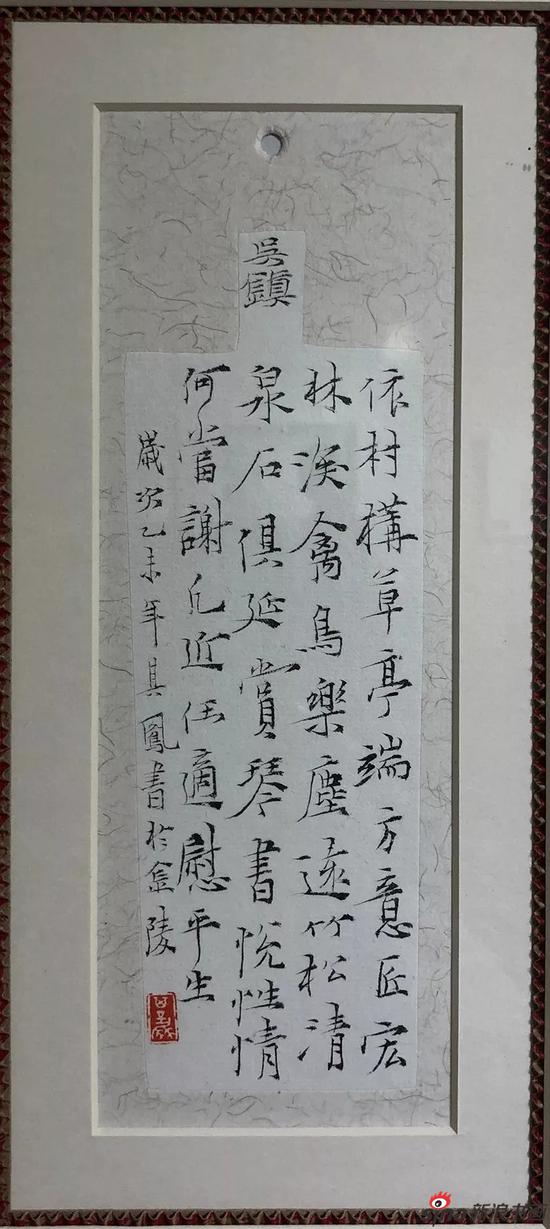 吳鎮
依村構草亭端方意匠宏
林深禽鳥樂塵遠竹松清
泉石俱延賞琴書悅性情
何當謝凡近任適慰平生
歲次乙未年其鳳書於金陵
新浪书